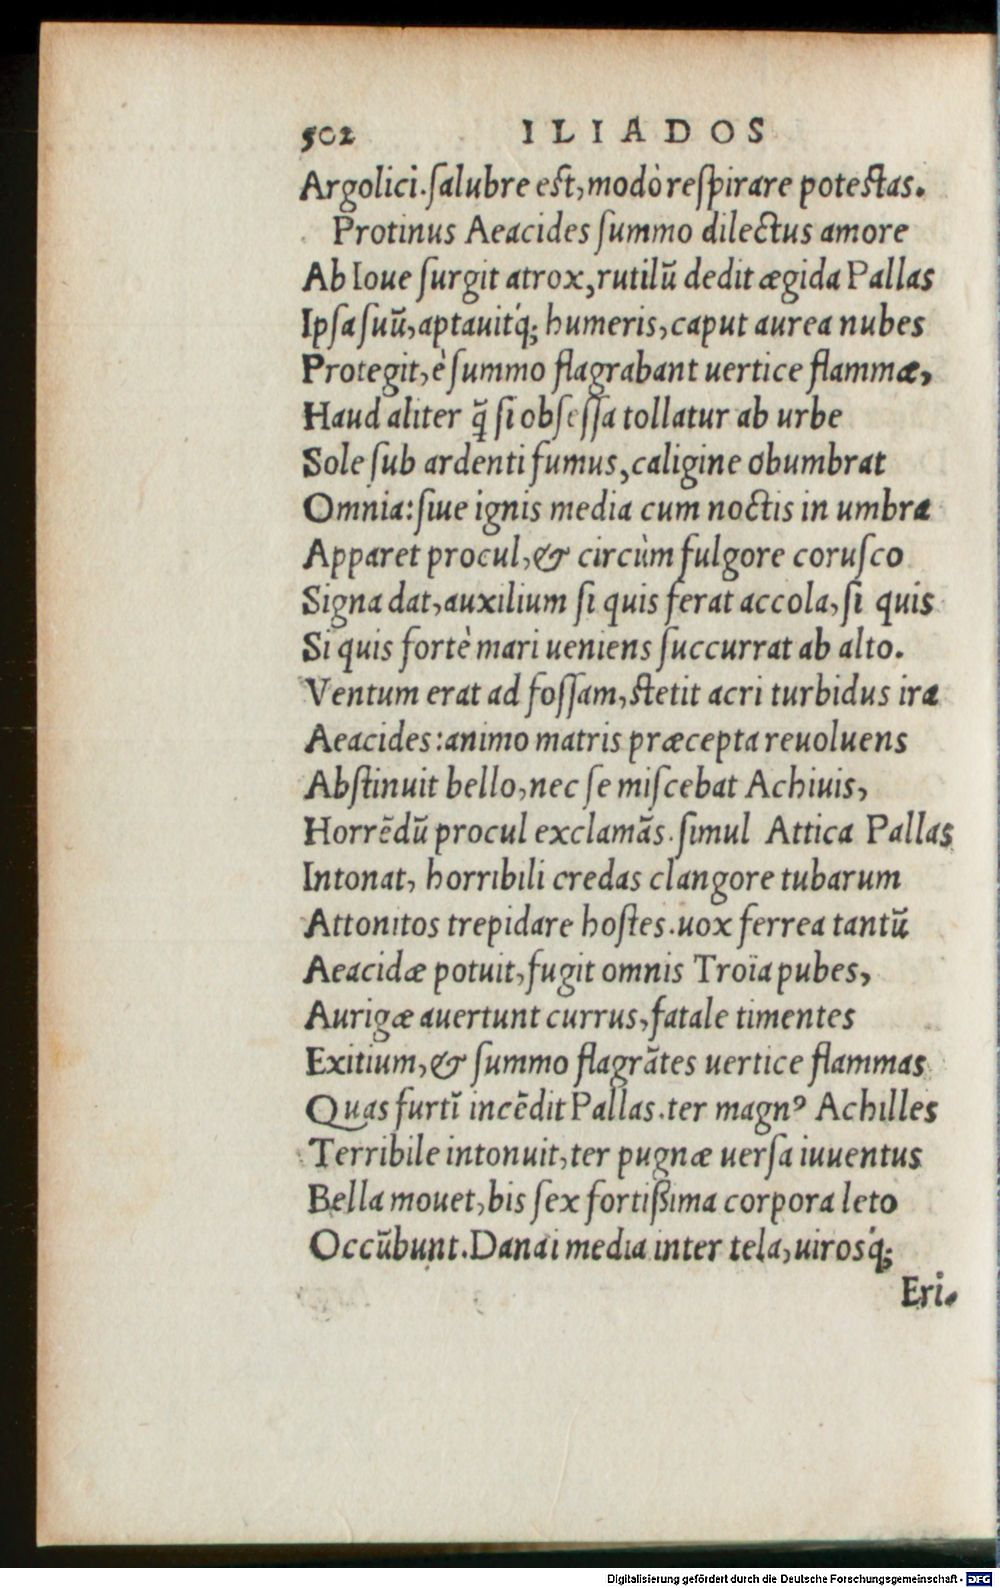 502 ILIADOS
Argolici.ſalubre eſt,modò reſpirare poteſtas.
Protinus Aeacides ſummo dilectus amore
Ab Ioue ſurgit atrox,rutilū dedit ægida Pallas
Ipſa ſuū,aptauitq́; humeris,caput aurea nubes
Protegit,è ſummo flagrabant uertice flammæ,
Haud aliter q̃ ſi obſeſſa tollatur ab urbe
Sole ſub ardenti fumus,caligine obumbrat
Omnia:ſiue ignis media cum noctis in umbra
Apparet procul,& circùm fulgore coruſco
Signa dat,auxilium ſi quis ferat accola,ſi quis
Si quis fortè mari ueniens ſuccurrat ab alto.
Ventum erat ad foſſam,ſtetit acri turbidus ira
Aeacides:animo matris præcepta reuoluens
Abſtinuit bello,nec ſe miſcebat Achiuis,
Horrēdū procul exclamās.ſimul Attica Pallas
Intonat, horribili credas clangore tubarum
Attonitos trepidare hoſtes.uox ferrea tantū
Aeacidæ potuit,fugit omnis Troïa pubes,
Aurigæ auertunt currus,fatale timentes
Exitium,& ſummo flagrātes uertice flammas
Quas furtī incēdit Pallas.ter magnꝰ Achilles
Terribile intonuit,ter pugnæ uerſa iuuentus
Bella mouet,bis ſex fortißima corpora leto
Occūbunt.Danai media inter tela,uirosq́;
Eri.
Digitalisierung gefördert durch die Deutsche Forschungsgemeinschaft - DFG